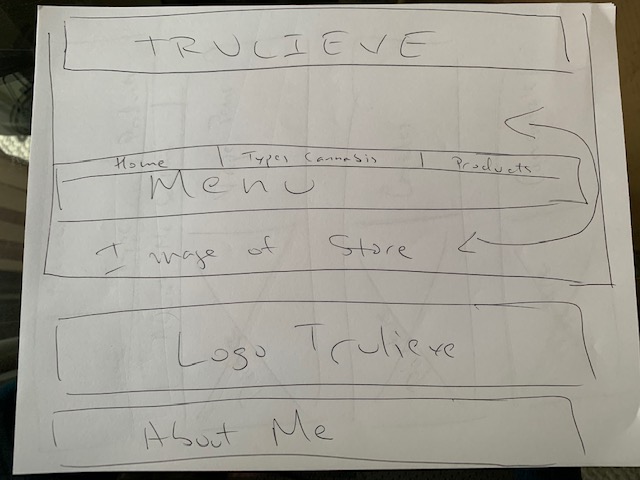 TRULIEVE
Home | Types Cannabis | Products
Menu
Image of Store
Logo Trulieve
About Me